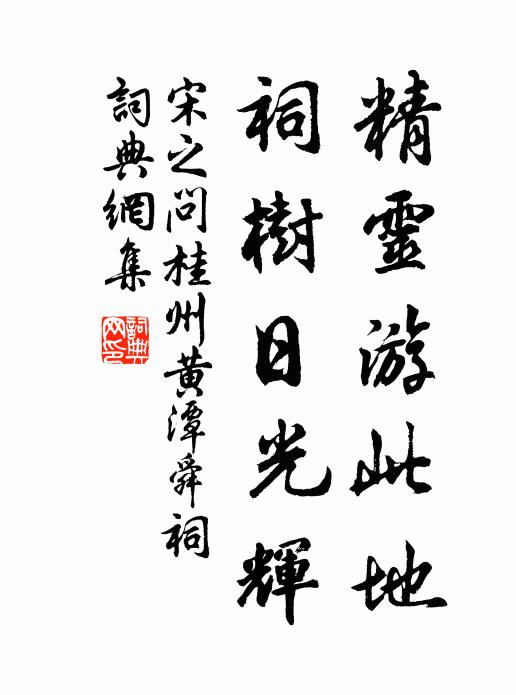 精靈游此地
祠樹日光輝
宋之问桂州黄潭舜祠
詞典網集
詞典网印